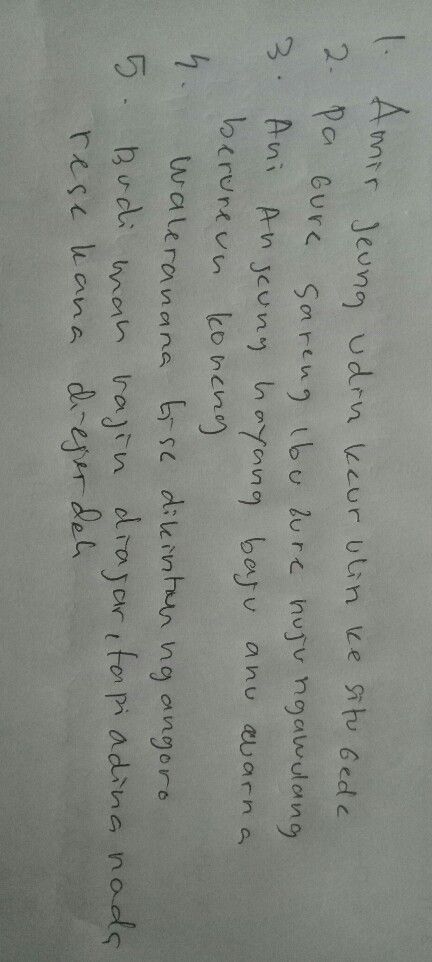 1. Amir jeung udin keur Ulin ke situ Gede
2. Pa Gure Sareng ibu Gure nuju ngawulang
3. Ani Anjeung hayang baju anu warna
bereureun koneng
4. Waleranana bisc dikintun ngangoro
5. Budi mah rajin diajar, tapi adina nada
rese kana diejer deh